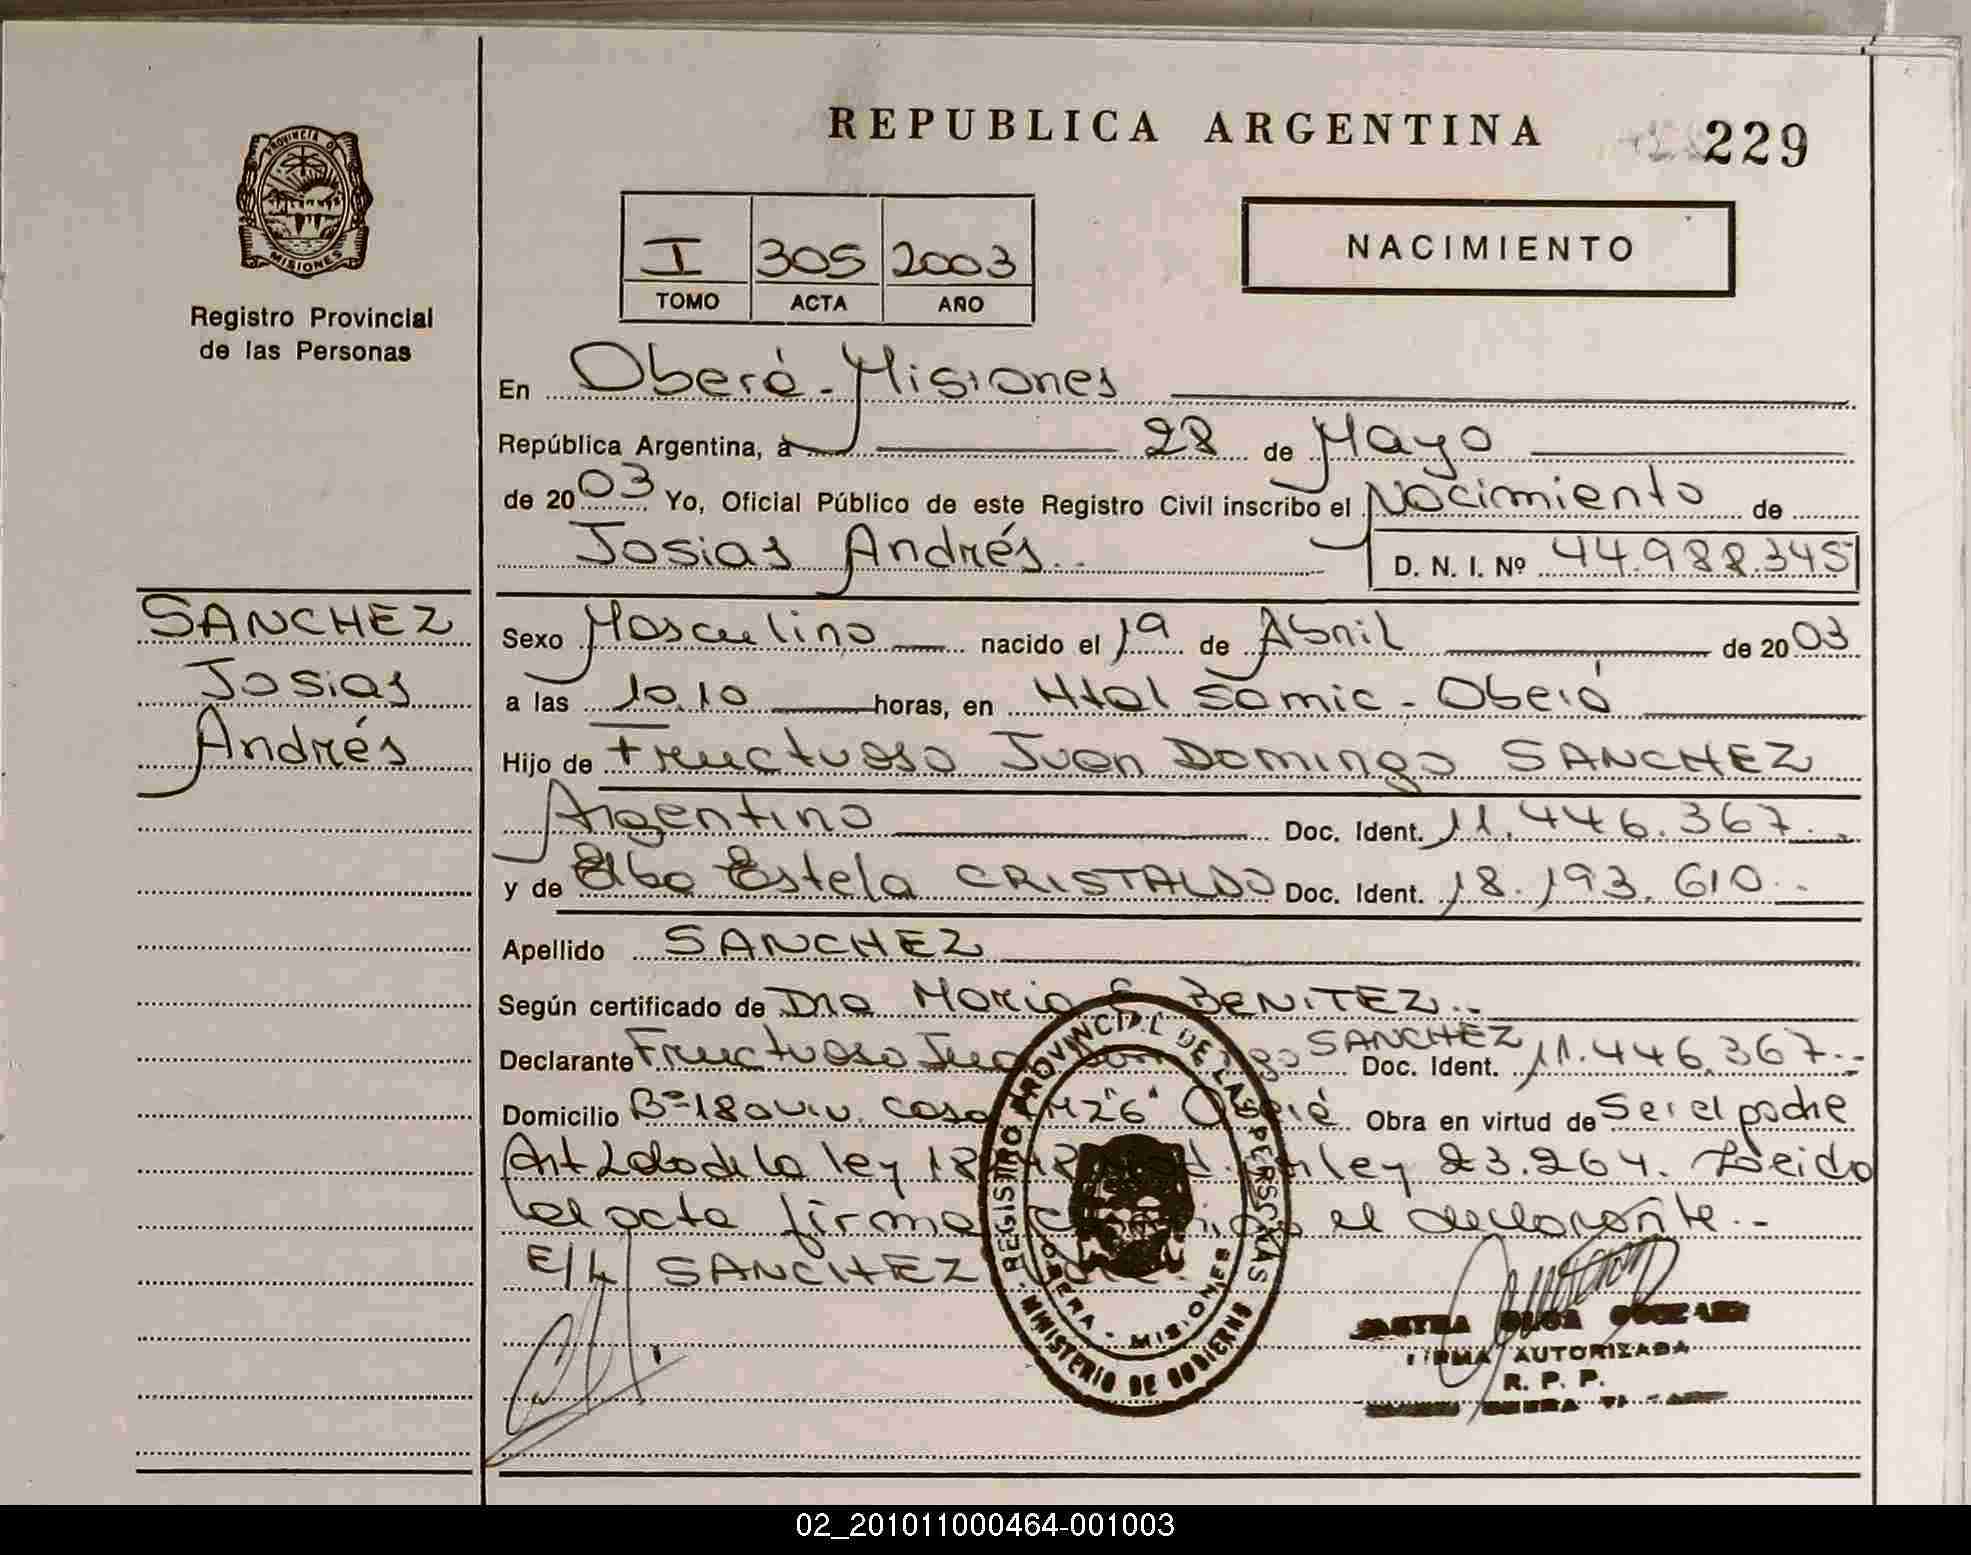 REPUBLICA ARGENTINA
229
PROVINCIA DE
MISIONES
Registro Provincial
de las Personas
I 305 2003
TOMO ACTA AÑO
NACIMIENTO
En Oberá - Misiones
República Argentina, a 28 de Mayo
de 2003 Yo, Oficial Público de este Registro Civil inscribo el Nacimiento de
Josias Andrés.. D. N. I. Nº 44.988.345
SANCHEZ
Josias
Andrés
Sexo Masculino nacido el 19 de Abril de 2003
a las 10.10 horas, en Htal Samic - Oberá
Hijo de Fructuoso Juan Domingo SANCHEZ
Argentino Doc. Ident. 11.446.367..
y de Elba Estela CRISTALDO Doc. Ident. 18.193.610..
Apellido SANCHEZ
Según certificado de Dra Maria E BENITEZ..
Declarante Fructuoso SANCHEZ Doc. Ident. 11.446.367..
Domicilio Bº 180 viv. casa Oberá Obra en virtud de Ser el padre
Art de la ley ley 23.264. Leido
el acta firma el declarante.-
E/L SANCHEZ
REGISTRO PROVINCIAL DE LAS PERSONAS
OBERA - MISIONES
MINISTERIO DE GOBIERNO
FIRMA AUTORIZADA
R. P. P.
02_201011000464-001003